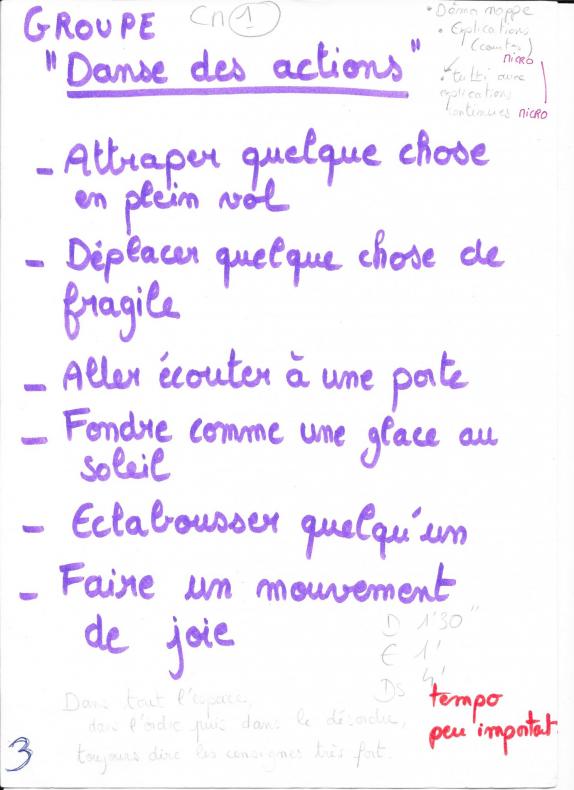 GROUPE
Cn 1
"Danse des actions"
• Démo nappe
• Explications
(courtes)
MICRO
• tutti avec
explications
continues MICRO
- Attraper quelque chose
en plein vol
- Déplacer quelque chose de
fragile
- Aller écouter à une porte
- Fondre comme une glace au
soleil
- Eclabousser quelqu'un
- Faire un mouvement
de joie
D 1'30"
E 1'
DS 4'
Dans tout l'espace,
dans l'ordre puis dans le désordre,
toujours dire les consignes très fort.
tempo
peu important.
3